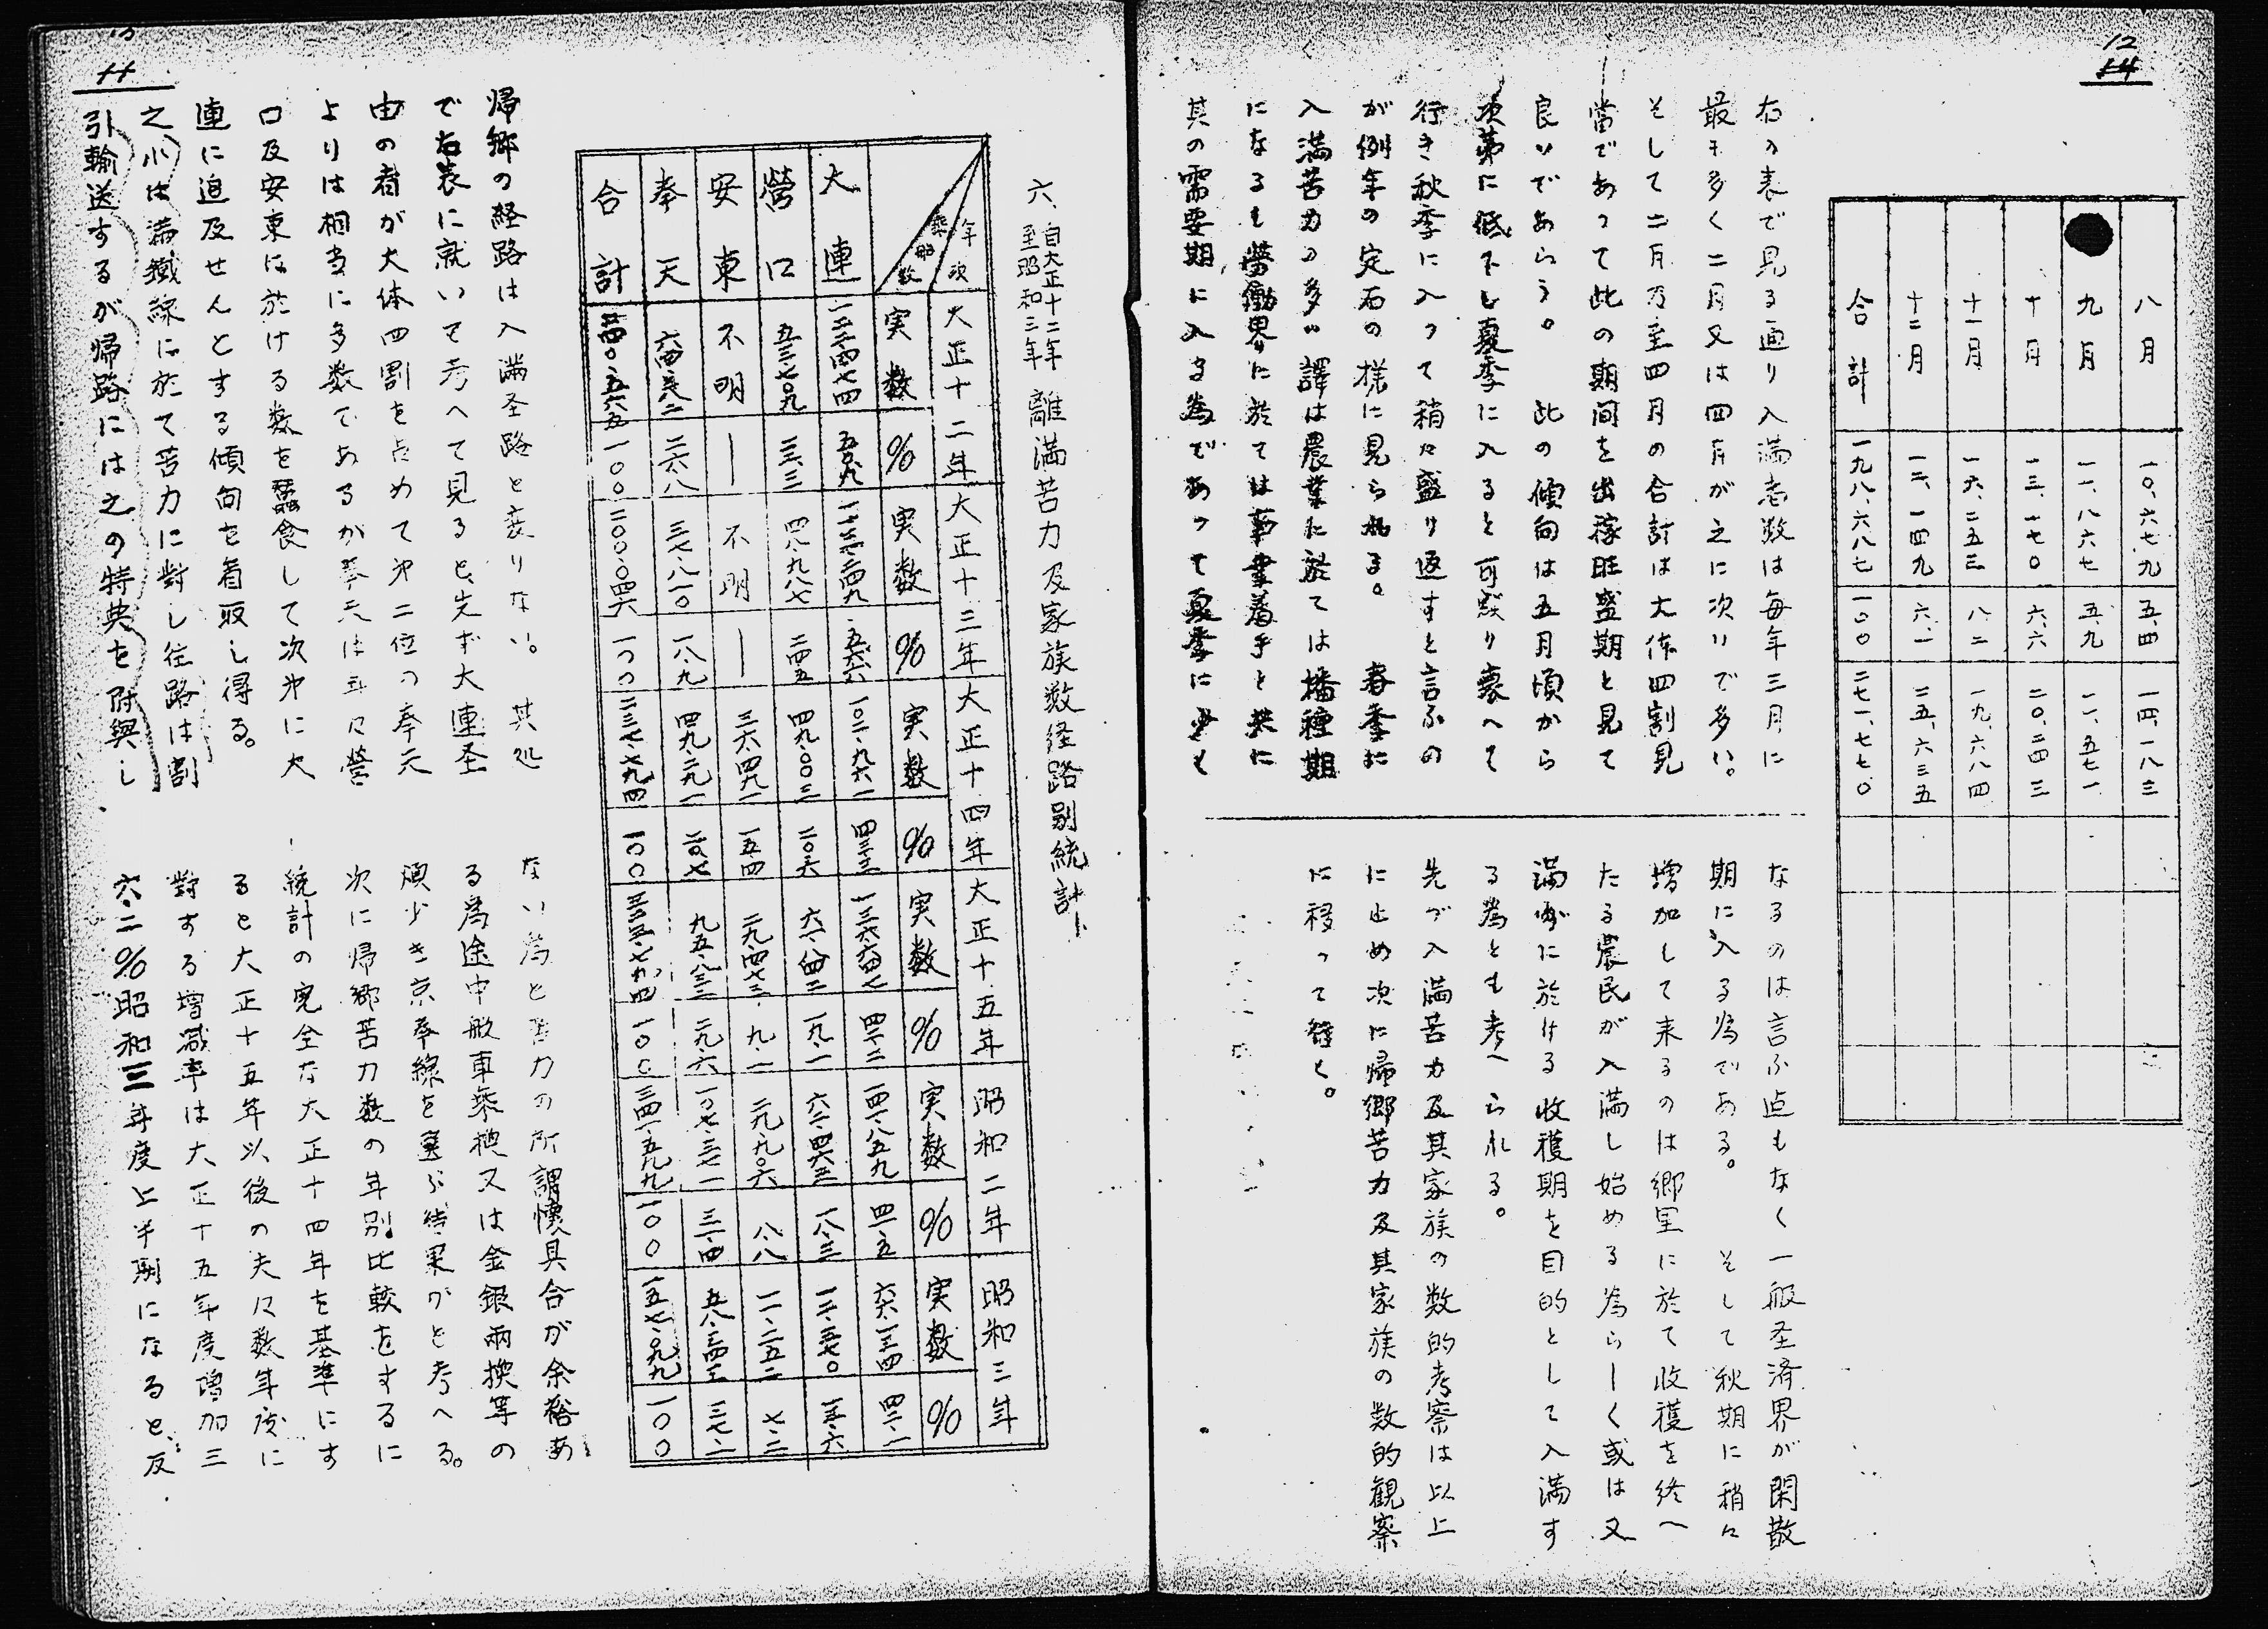 12
14
八月 一〇、六七九 五、四 一四、一八三
九月 一一、八六七 五、九 一一、五七一
十月 一三、一七〇 六、六 二〇、二四三
十一月 一六、二五三 八、二 一九、六八四
十二月 一二、一四九 六、一 三五、六三五
合計 一九八、六八七 一〇〇 二七一、七七〇
右の表で見る通り入満者数は毎年三月に
最も多く二月又は四月が之に次いで多い。
そして二月乃至四月の合計は大体四割見
當であって此の期间を出稼旺盛期と見て
良いであらう。 此の傾向は五月頃から
次第に低下し夏季に入ると可成り衰へて
行き秋季に入って稍々盛り返すと言ふの
が例年の定石の様に見られる。 春季に
入満苦力の多い譯は農業に於ては播種期
になるし労働界に於ては事業着手と共に
其の需要期に入る為であって夏季に少も
なるのは言ふ迄もなく一般圣済界が閑散
期に入る為である。 そして秋期に稍々
増加して来るのは郷里に於て收穫を終へ
たる農民が入満し始める為らしく或は又
満州に於ける收穫期を目的として入満す
る為とも考へられる。
先づ入満苦力及其家族の数的考察は以上
に止め次に帰郷苦力及其家族の数的観察
に移って行く。
六、自大正十二年至昭和三年 離満苦力及家族数経路別統計
年次 大正十二年 大正十三年 大正十四年 大正十五年 昭和二年 昭和三年
実数 % 実数 % 実数 % 実数 % 実数 % 実数 %
大連 一二二、四七四 五〇、九 一一三、二四九 五六、六 一〇一、九六一 四三、三 一三六、六四七 四二、二 一四一、八五九 四一、五 六六、一三四 四二、一
營口 五三、七〇九 二二、三 四八、九八七 二四、五 四九、〇〇三 二〇、六 六一、八四二 一九、一 六二、四六三 一八、三 二一、三七〇 一三、六
安東 不明 ― 不明 ― 三六、四九一 一五、四 二九、四七三 九、一 二九、九〇六 八、八 一一、二五二 七、二
奉天 六四、三八二 二六、八 三七、八一〇 一八、九 四九、二九一 二〇、七 九五、八三二 二九、六 一〇七、三七一 三一、四 五八、三四三 三七、一
合計 二四〇、五六五 一〇〇 二〇〇、〇四六 一〇〇 二三七、七九四 一〇〇 三二三、七九四 一〇〇 三四一、五九九 一〇〇 一五七、〇九九 一〇〇
帰郷の経路は入満圣路と変りない。 其処
で右表に就いて考へて見ると、先ず大連圣
由の者が大体四割を占めて第二位の奉天
よりは相当に多数であるが奉天は年々營
口及安東に於ける数を蚕食して次第に大
連に追及せんとする傾向を看取し得る。
之ハ満鐵線に於て苦力に對し往路は割
引輸送するが帰路には之の特典を附與し
ない為と苦力の所謂懐具合が余裕あ
る為途中舩車乗換又は金銀兩換等の
煩少き京奉線を選ぶ結果かと考へる。
次に帰郷苦力数の年別比較をするに
統計の完全な大正十四年を基準にす
ると大正十五年以後の夫々数年度に
對する増減率は大正十五年度増加三
六、二%昭和三年度上半期になると、反
11